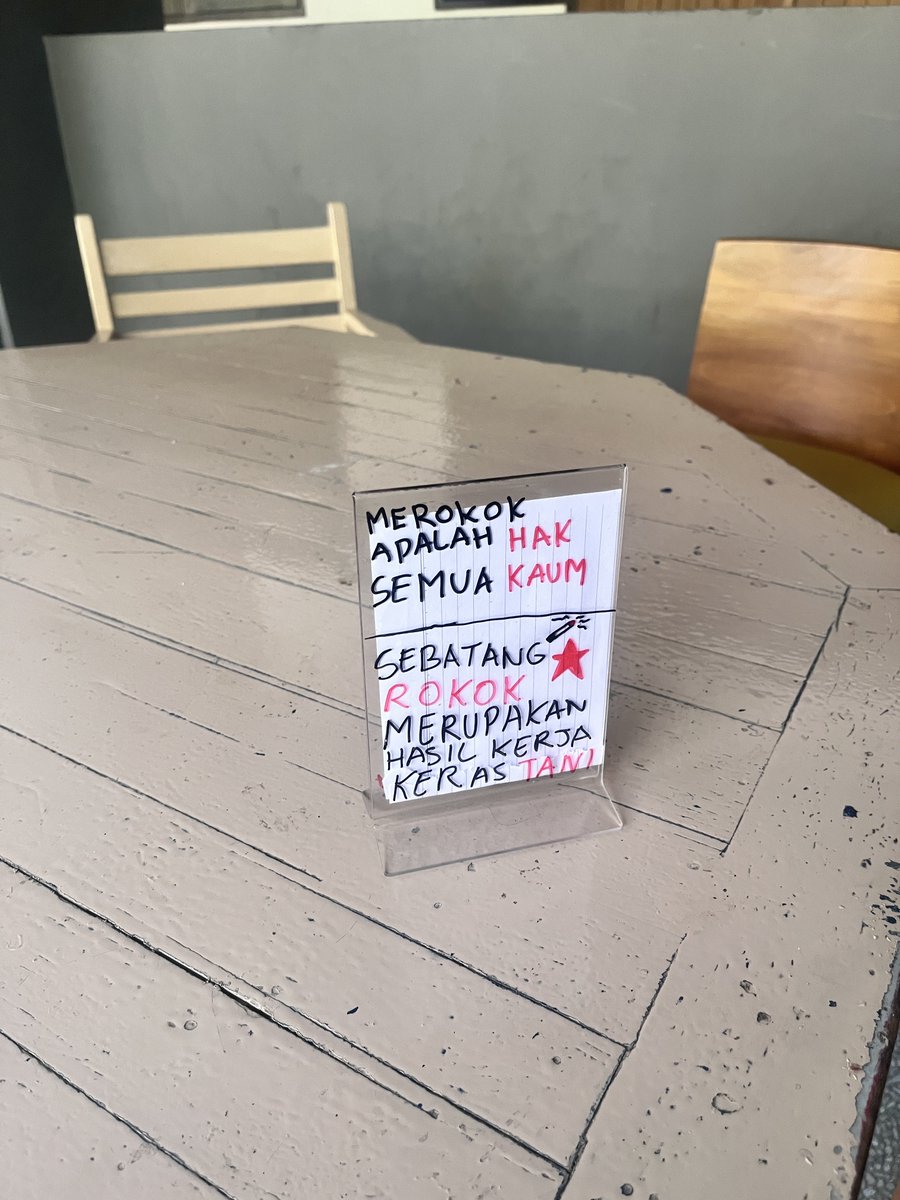 MEROKOK
ADALAH HAK
SEMUA KAUM
SEBATANG
ROKOK
MERUPAKAN
HASIL KERJA
KERAS TANI